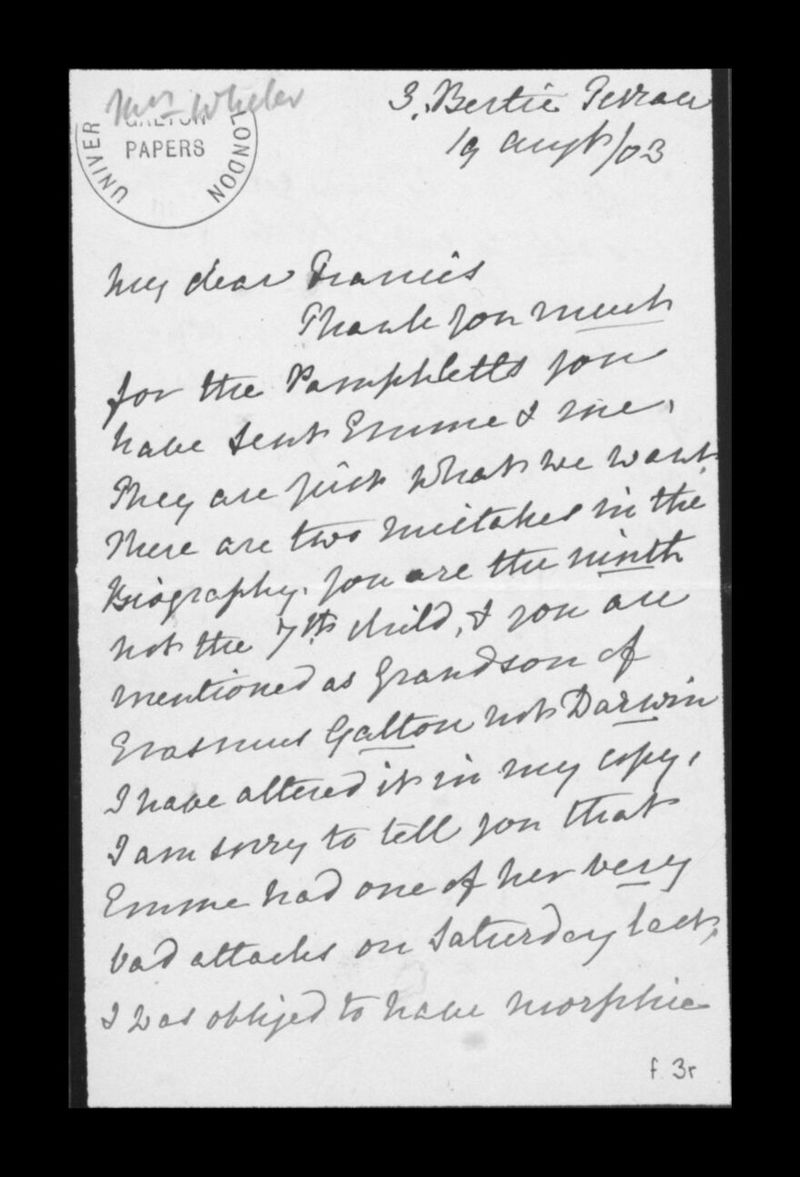 Mrs Wheler
GALTON
PAPERS
UNIVER
LONDON
3, Bertie Terrace
19 Augt/03
My dear Francis
Thank you much
for the Pamphletts you
have sent Emme & me,
They are just what we want.
There are two mistakes in the
Biography. you are the ninth
not the 7th child, & you are
mentioned as Grandson of
Erasmus Galton not Darwin
I have altered it in my copy,
I am sorry to tell you that
Emme had one of her very
bad attacks on Saturday last,
I was obliged to have morphia
f. 3r